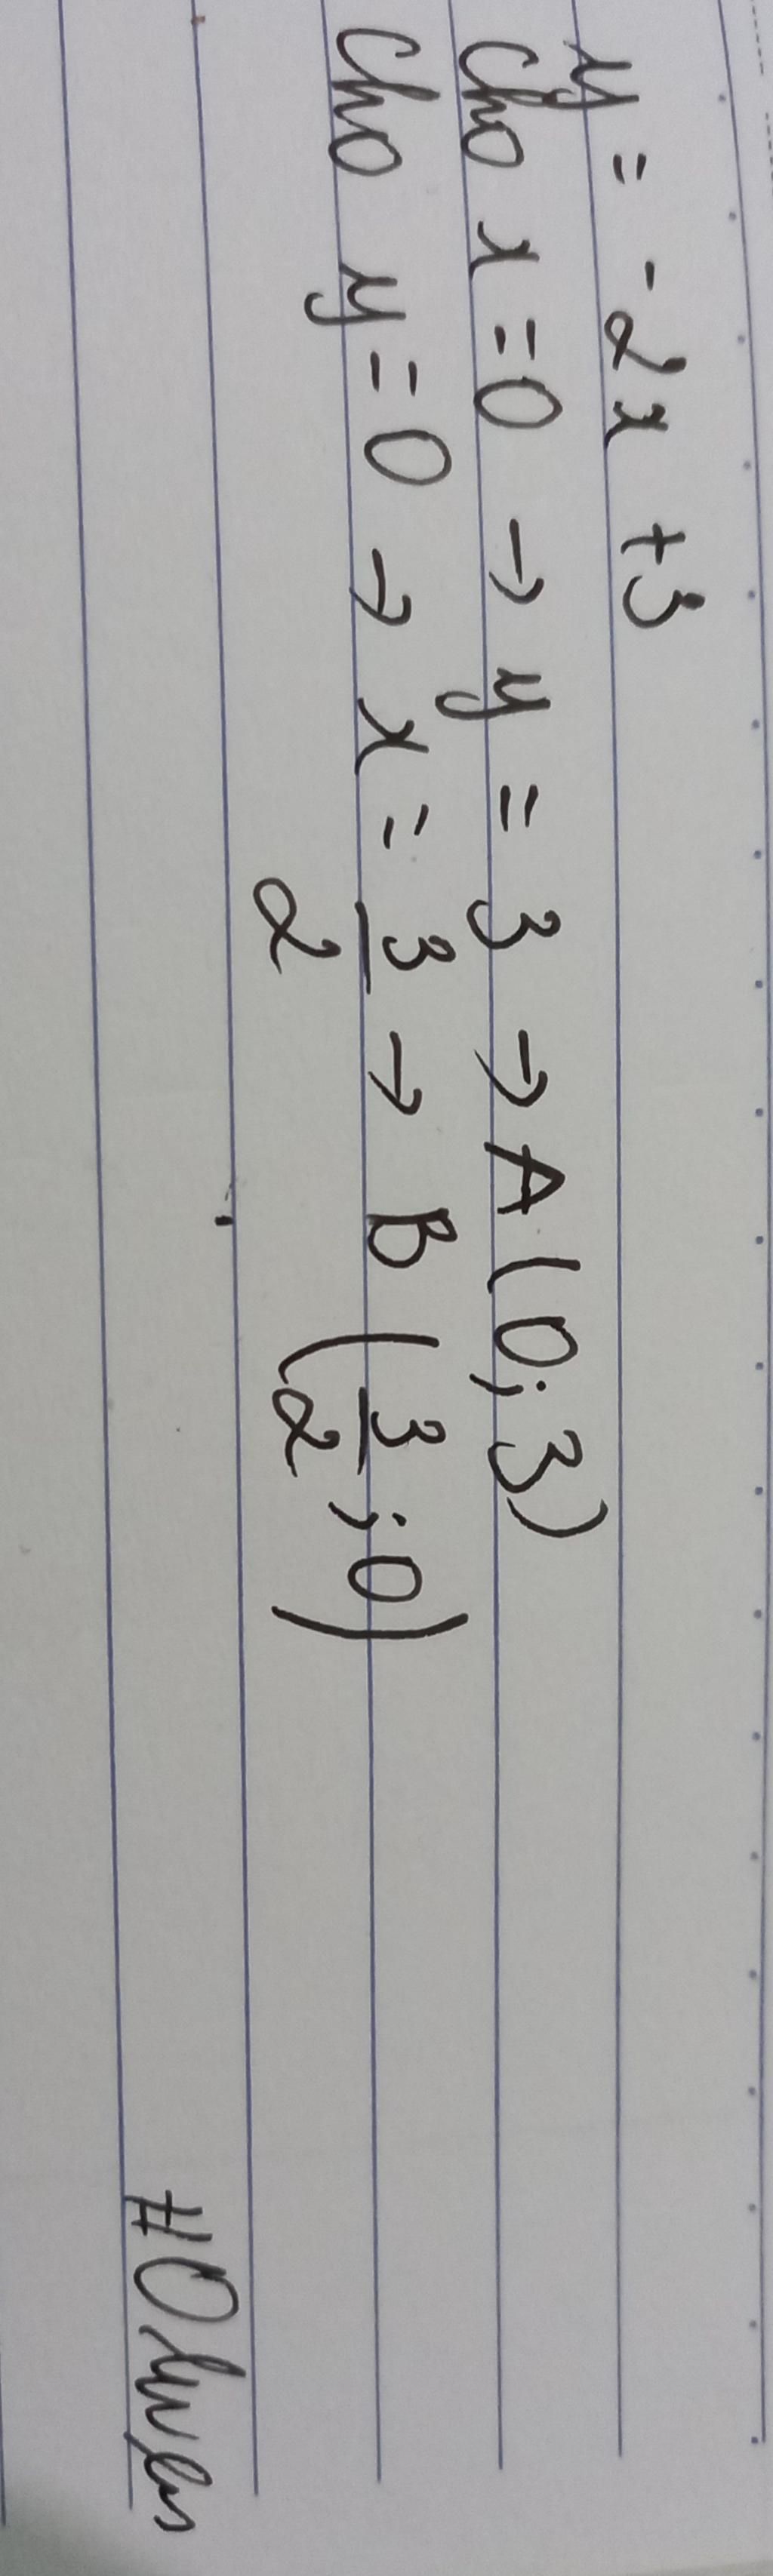 y = -2x + 3
Cho x = 0 → y = 3 → A(0; 3)
Cho y = 0 → x = 3/2 → B(3/2; 0)